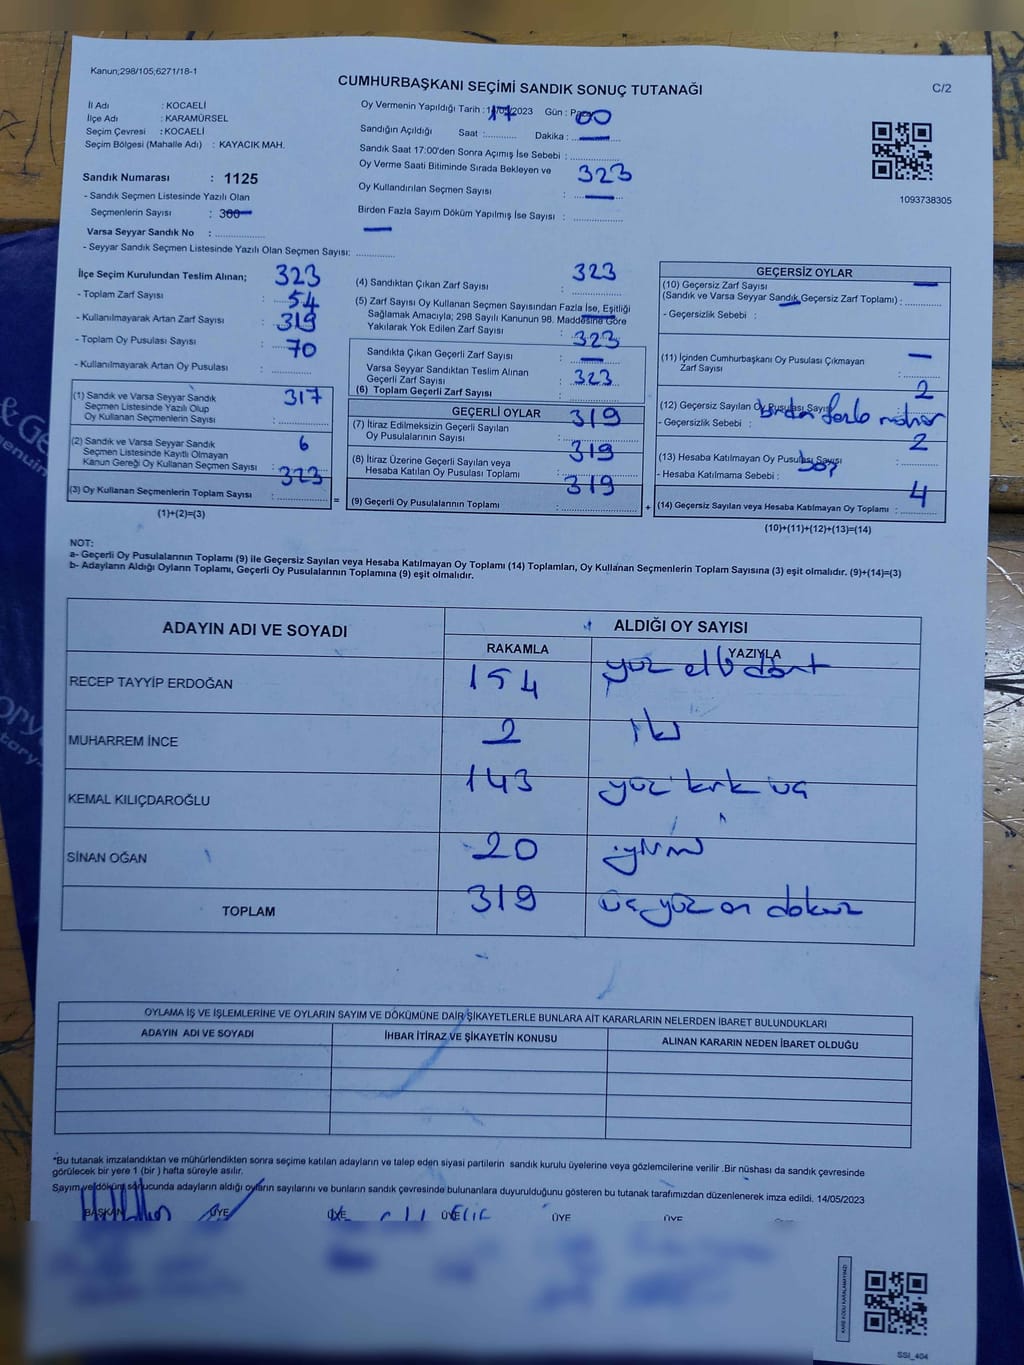 Kanun;298/105;6271/18-1
CUMHURBAŞKANI SEÇİMİ SANDIK SONUÇ TUTANAĞI
C/2
İl Adı : KOCAELİ
İlçe Adı : KARAMÜRSEL
Seçim Çevresi : KOCAELİ
Seçim Bölgesi (Mahalle Adı) : KAYACIK MAH.
Sandık Numarası : 1125
- Sandık Seçmen Listesinde Yazılı Olan
Seçmenlerin Sayısı :
Varsa Seyyar Sandık No : ............
- Seyyar Sandık Seçmen Listesinde Yazılı Olan Seçmen Sayısı: ............
Oy Vermenin Yapıldığı Tarih : /2023 Gün :
Sandığın Açıldığı Saat :.......... Dakika : 17 00
Sandık Saat 17:00'den Sonra Açımış İse Sebebi : ............
Oy Verme Saati Bitiminde Sırada Bekleyen ve
Oy Kullandırılan Seçmen Sayısı : 323
Birden Fazla Sayım Döküm Yapılmış İse Sayısı : ............
1093738305
İlçe Seçim Kurulundan Teslim Alınan; 323
- Toplam Zarf Sayısı : 54
- Kullanılmayarak Artan Zarf Sayısı : 319
- Toplam Oy Pusulası Sayısı : 70
- Kullanılmayarak Artan Oy Pusulası : ............
(1) Sandık ve Varsa Seyyar Sandık 317
Seçmen Listesinde Yazılı Olup
Oy Kullanan Seçmenlerin Sayısı : ............
(2) Sandık ve Varsa Seyyar Sandık 6
Seçmen Listesinde Kayıtlı Olmayan
Kanun Gereği Oy Kullanan Seçmen Sayısı : ............
323
(3) Oy Kullanan Seçmenlerin Toplam Sayısı : ............ =
(1)+(2)=(3)
(4) Sandıktan Çıkan Zarf Sayısı : 323
(5) Zarf Sayısı Oy Kullanan Seçmen Sayısından Fazla İse, Eşitliği
Sağlamak Amacıyla; 298 Sayılı Kanunun 98. Maddesine Göre
Yakılarak Yok Edilen Zarf Sayısı :
323
Sandıkta Çıkan Geçerli Zarf Sayısı : —
Varsa Seyyar Sandıktan Teslim Alınan
Geçerli Zarf Sayısı : 323
(6) Toplam Geçerli Zarf Sayısı : ............
GEÇERLİ OYLAR 319
(7) İtiraz Edilmeksizin Geçerli Sayılan
Oy Pusulalarının Sayısı : ............
319
(8) İtiraz Üzerine Geçerli Sayılan veya
Hesaba Katılan Oy Pusulası Toplamı : ............
319
(9) Geçerli Oy Pusulalarının Toplamı : ............ +
GEÇERSİZ OYLAR
(10) Geçersiz Zarf Sayısı —
(Sandık ve Varsa Seyyar Sandık Geçersiz Zarf Toplamı) : ............
- Geçersizlik Sebebi : —
(11) İçinden Cumhurbaşkanı Oy Pusulası Çıkmayan —
Zarf Sayısı : ............
2
(12) Geçersiz Sayılan Oy Pusulası Sayısı
- Geçersizlik Sebebi : birden fazla mühür
2
(13) Hesaba Katılmayan Oy Pusulası Sayısı : ............
- Hesaba Katılmama Sebebi : boş
4
(14) Geçersiz Sayılan veya Hesaba Katılmayan Oy Toplamı : ............
(10)+(11)+(12)+(13)=(14)
NOT:
a- Geçerli Oy Pusulalarının Toplamı (9) ile Geçersiz Sayılan veya Hesaba Katılmayan Oy Toplamı (14) Toplamları, Oy Kullanan Seçmenlerin Toplam Sayısına (3) eşit olmalıdır. (9)+(14)=(3)
b- Adayların Aldığı Oyların Toplamı, Geçerli Oy Pusulalarının Toplamına (9) eşit olmalıdır.
ADAYIN ADI VE SOYADI ALDIĞI OY SAYISI
RAKAMLA YAZIYLA
RECEP TAYYİP ERDOĞAN 154 yüz elli dört
MUHARREM İNCE 2 iki
KEMAL KILIÇDAROĞLU 143 yüz kırk üç
SİNAN OĞAN 20 yirmi
TOPLAM 319 üç yüz on dokuz
OYLAMA İŞ VE İŞLEMLERİNE VE OYLARIN SAYIM VE DÖKÜMÜNE DAİR ŞİKAYETLERLE BUNLARA AİT KARARLARIN NELERDEN İBARET BULUNDUKLARI
ADAYIN ADI VE SOYADI İHBAR İTİRAZ VE ŞİKAYETİN KONUSU ALINAN KARARIN NEDEN İBARET OLDUĞU
*Bu tutanak imzalandıktan ve mühürlendikten sonra seçime katılan adayların ve talep eden siyasi partilerin sandık kurulu üyelerine veya gözlemcilerine verilir .Bir nüshası da sandık çevresinde
görülecek bir yere 1 (bir ) hafta süreyle asılır.
Sayım ve döküm sonucunda adayların aldığı oyların sayılarını ve bunların sandık çevresinde bulunanlara duyurulduğunu gösteren bu tutanak tarafımızdan düzenlenerek imza edildi. 14/05/2023
BAŞKAN ÜYE ÜYE ÜYE ÜYE ÜYE
SSI_404